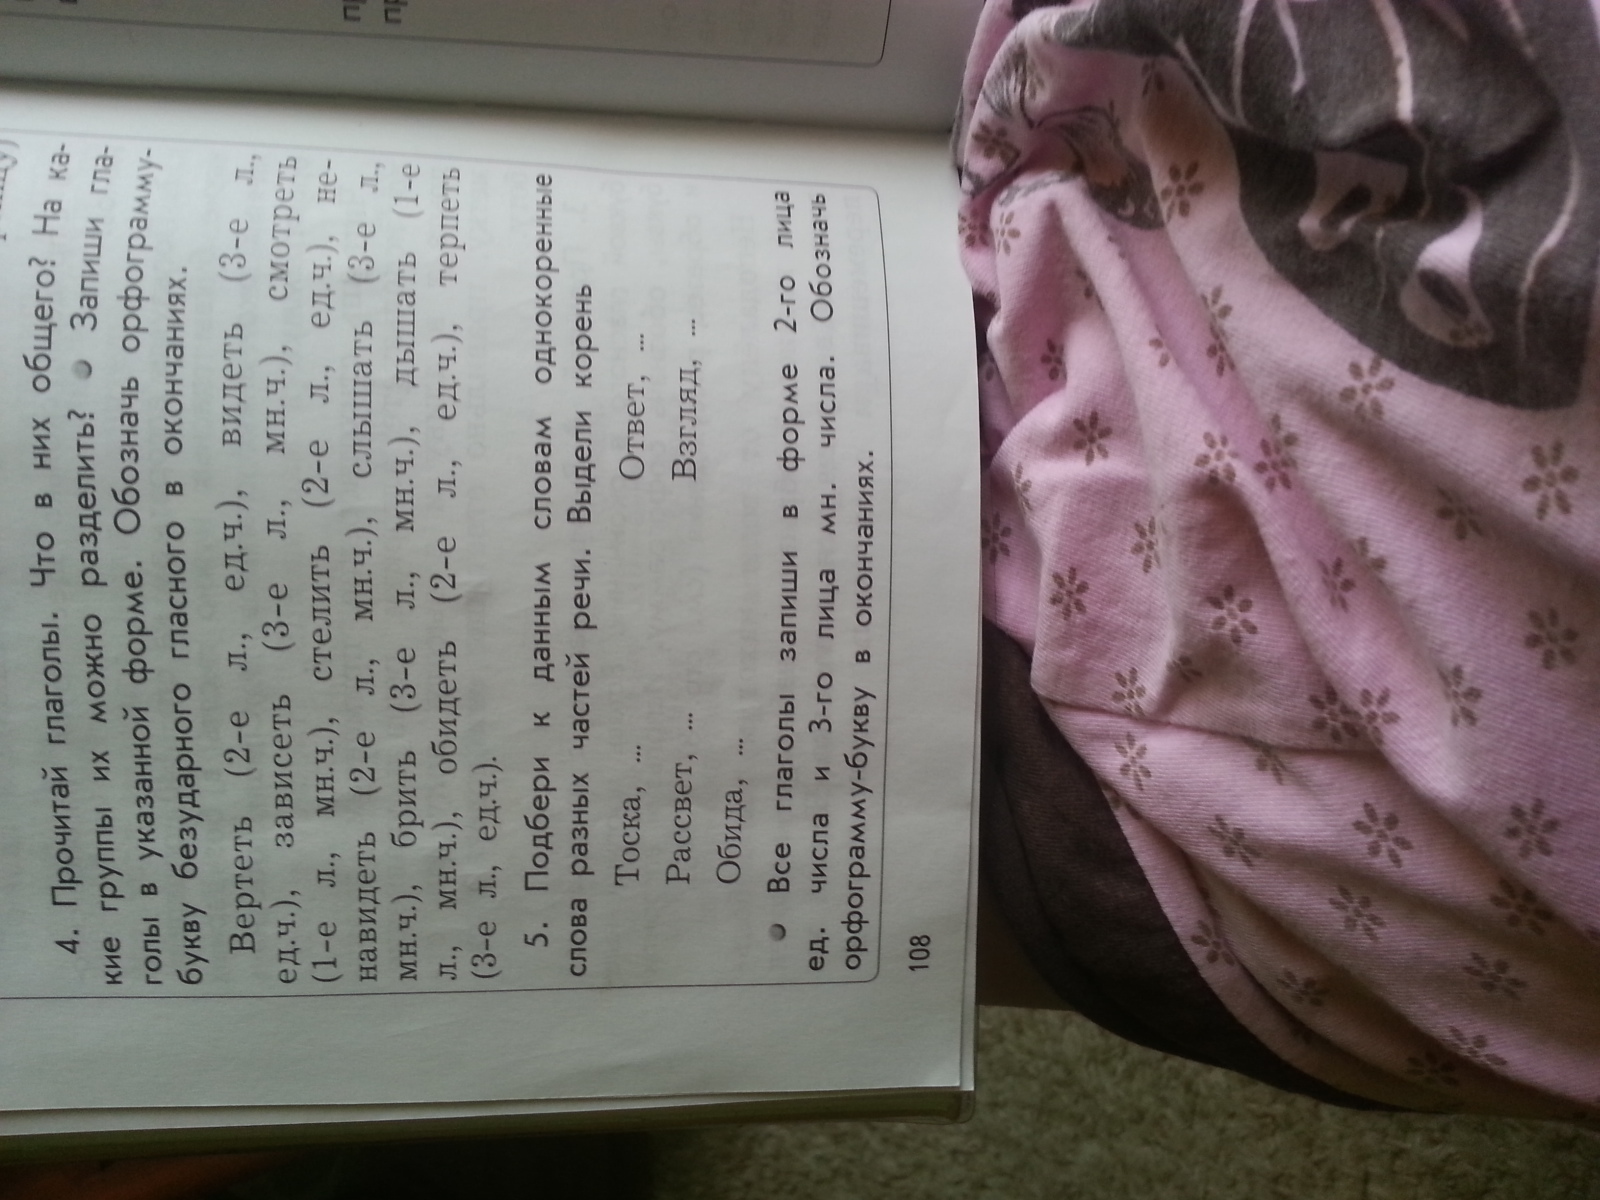 4. Прочитай глаголы. Что в них общего? На ка-
кие группы их можно разделить? ● Запиши гла-
голы в указанной форме. Обозначь орфограмму-
букву безударного гласного в окончаниях.
Вертеть (2-е л., ед.ч.), видеть (3-е л.,
ед.ч.), зависеть (3-е л., мн.ч.), смотреть
(1-е л., мн.ч.), стелить (2-е л., ед.ч.), не-
навидеть (2-е л., мн.ч.), слышать (3-е л.,
мн.ч.), брить (3-е л., мн.ч.), дышать (1-е
л., мн.ч.), обидеть (2-е л., ед.ч.), терпеть
(3-е л., ед.ч.).
5. Подбери к данным словам однокоренные
слова разных частей речи. Выдели корень
Тоска, ... Ответ, ...
Рассвет, ... Взгляд, ...
Обида, ...
● Все глаголы запиши в форме 2-го лица
ед. числа и 3-го лица мн. числа. Обозначь
орфограмму-букву в окончаниях.
108